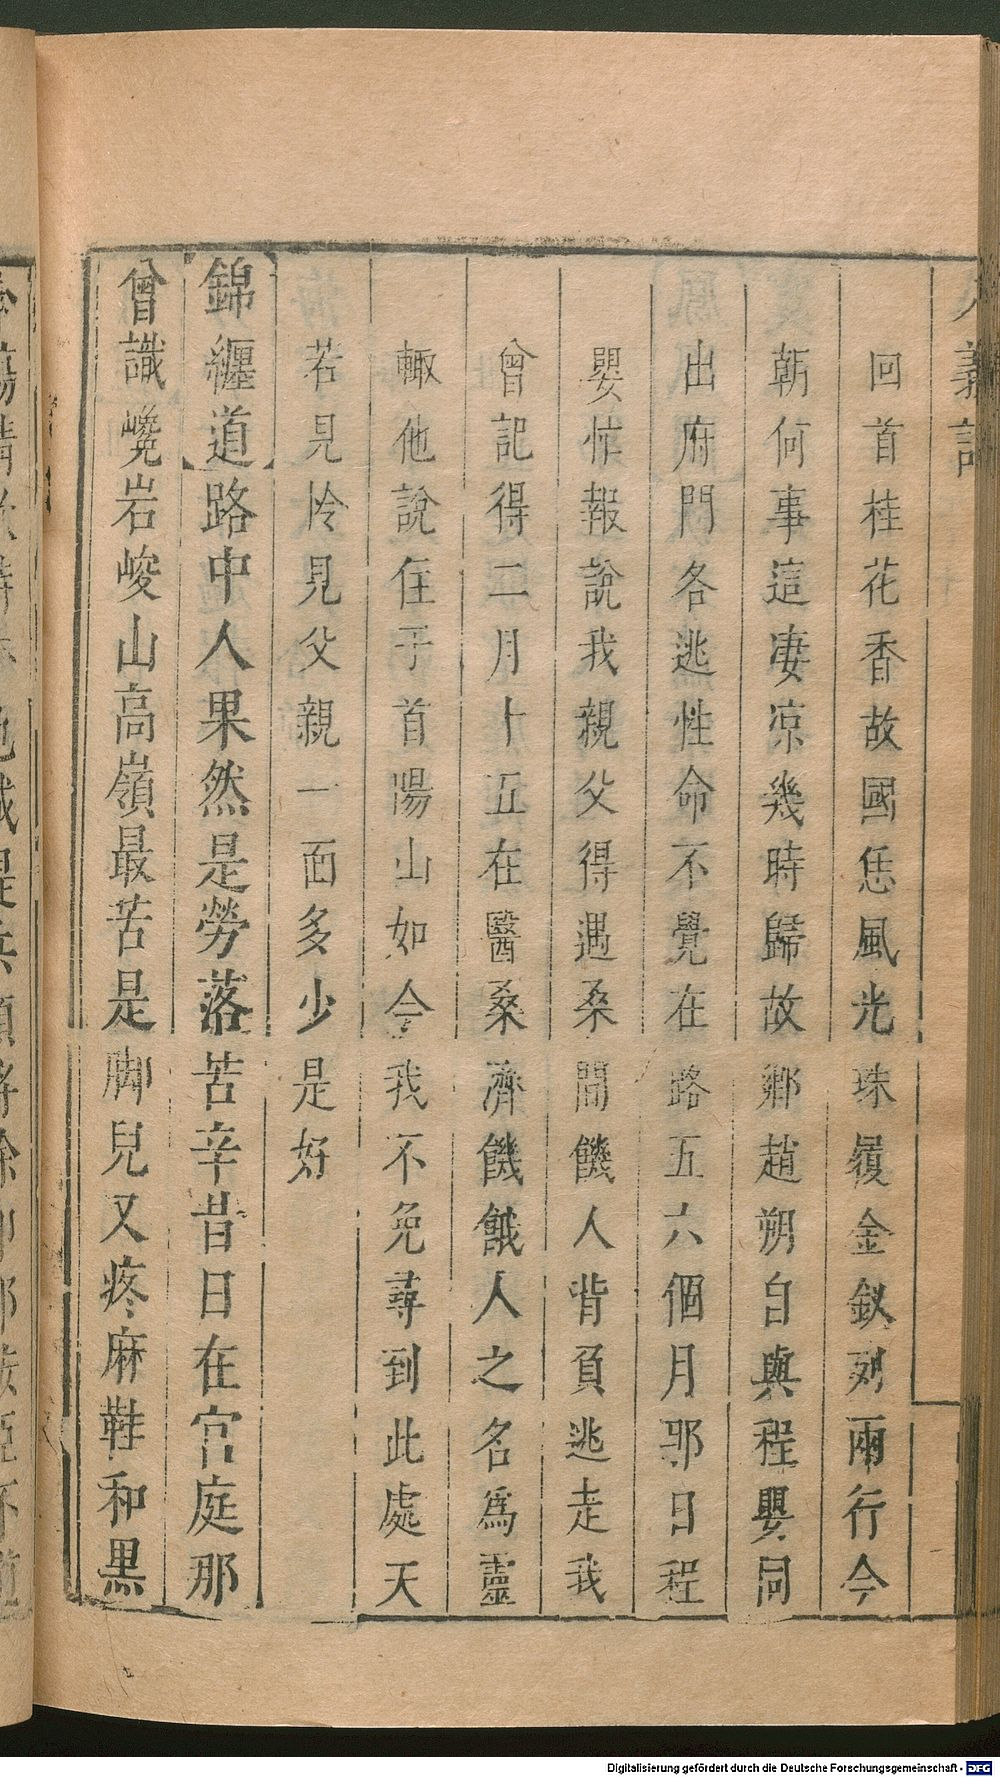 八義記
回首桂花香故國恁風光珠履金釵列兩行今
朝何事這凄凉幾時歸故鄉趙朔自與程嬰同
出府門各逃性命不覺在路五六個月那日程
嬰忙報說我親父得遇桑間饑人背負逃走我
曾記得二月十五在醫桑濟饑餓人之名為靈
輙他說住于首陽山如今我不免尋到此處天
若見怜見父親一面多少是好
【錦纏道】路中人果然是勞落苦辛昔日在官庭那
曾識巉岩峻山高嶺最苦是脚兒又疼麻鞋和黒
Digitalisierung gefördert durch die Deutsche Forschungsgemeinschaft - DFG